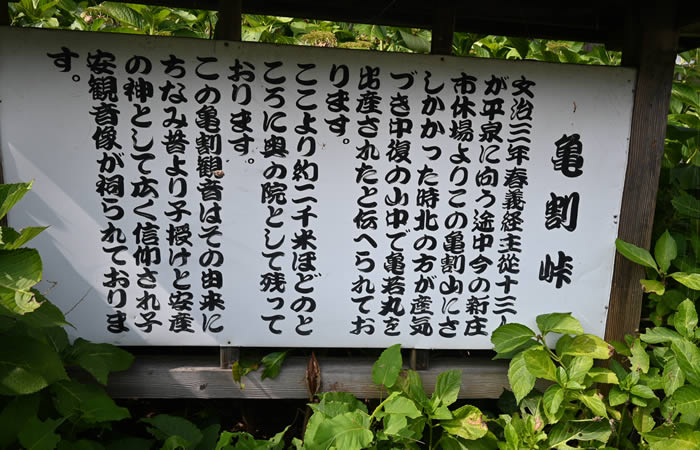 亀割峠
安治三年春義経主従十三
が平泉に向う途中今の新庄
市休場よりこの亀割山にさ
しかかった時北の方が産気
づき中復の山中で亀若丸を
出産されたと伝へられてお
ります。
ここより約二千米ほどのと
ころに奥の院として残って
おります。
この亀割観音はその由来に
ちなみ昔より子授けと安産
の神として広く信仰され子
安観音像が祠られておりま
す。